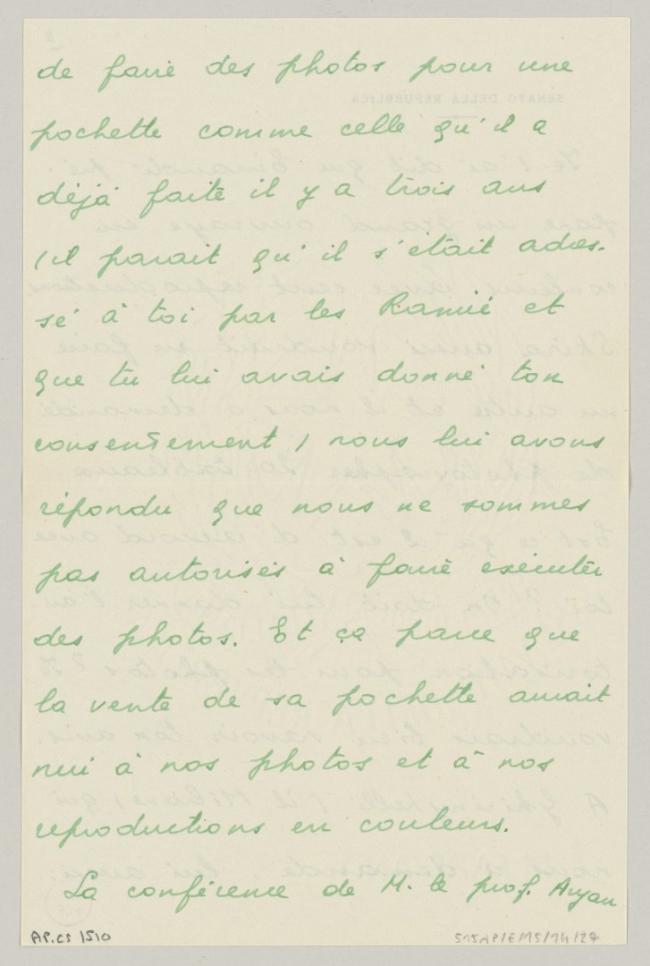 de faire des photos pour une
pochette comme celle qu'il a
déjà faite il y a trois ans
(il parait qu'il s'était adres-
sé à toi par les Ramié et
que tu lui avais donné ton
consentement) nous lui avons
répondu que nous ne sommes
pas autorisés à faire exécuter
des photos. Et ça parce que
la vente de sa pochette aurait
nui à nos photos et à nos
reproductions en couleurs.
La conférence de M. le prof. Argan
AP.CS 1510
515AP/E/15/14/27
SENATO DELLA REPUBBLICA